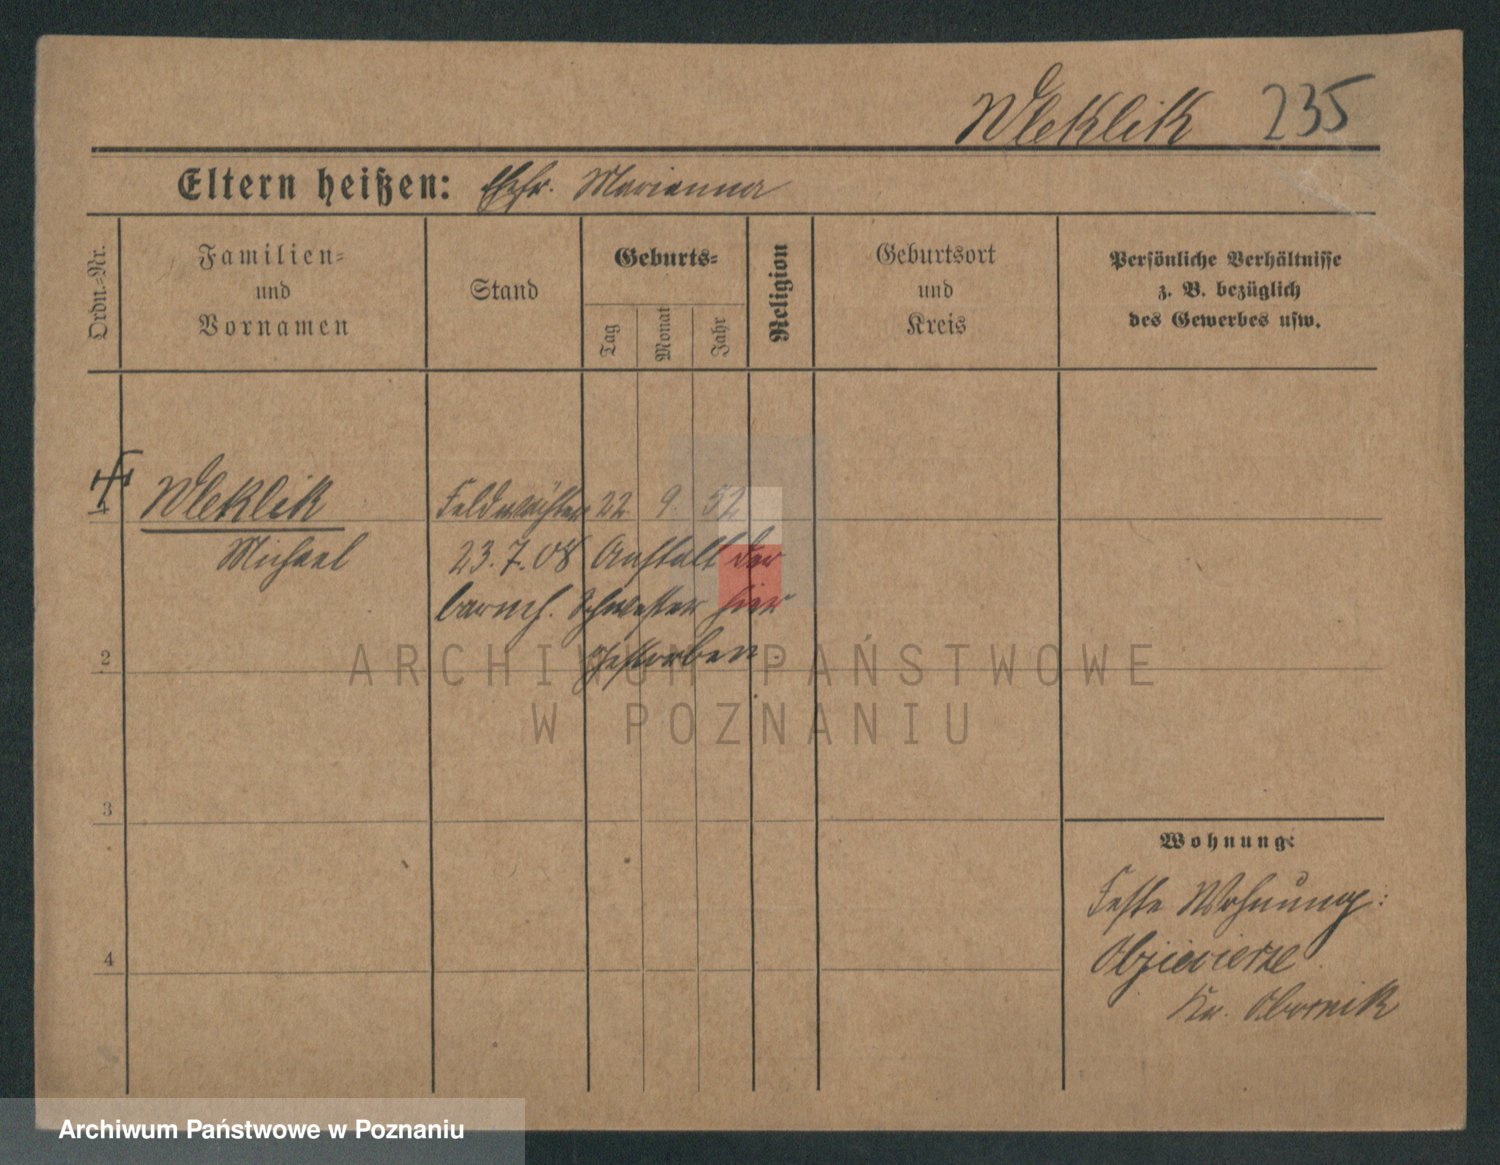 Wleklik 235
Eltern heißen: Ehefr. Marianna
Ordn.-Nr.
Familien-
und
Vornamen
Stand
Geburts-
Tag
Monat
Jahr
Religion
Geburtsort
und
Kreis
Persönliche Verhältnisse
z. B. bezüglich
des Gewerbes usw.
1
Wleklik Feldwächter 22 9. 52
Michael 23.7.08 Anstalt der
barmh. Schwester hier
gestorben.
2
3
4
Wohnung:
Feste Wohnung:
Objezierze
Kr. Obornik
ARCHIWUM PAŃSTWOWE
W POZNANIU
Archiwum Państwowe w Poznaniu